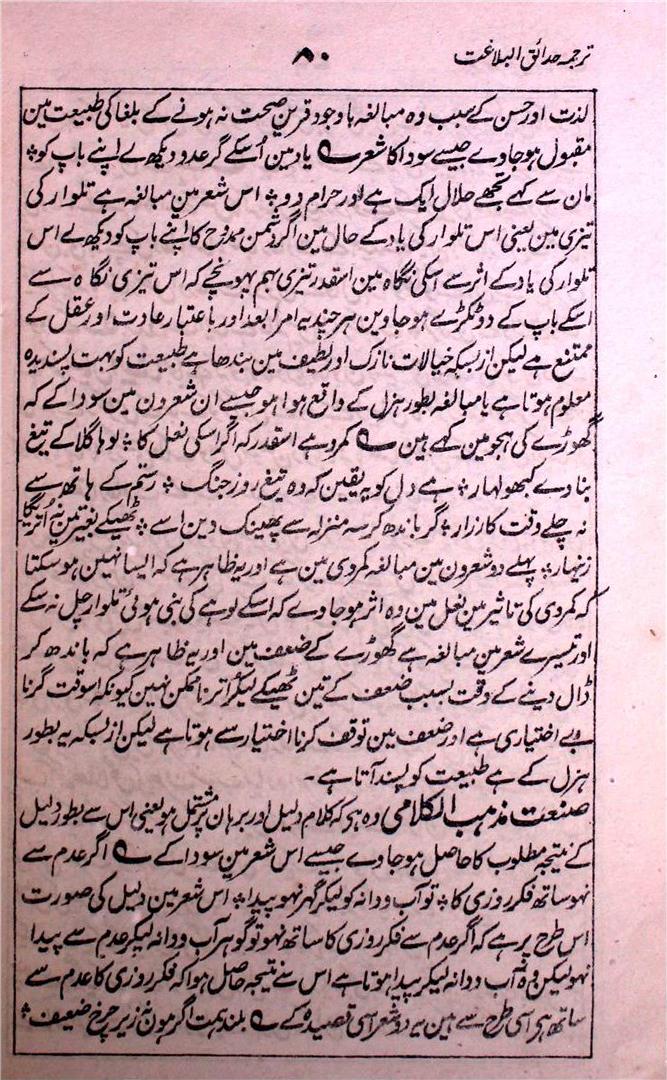 ترجمہ حدائق البلاغت
۸۰
لذت اور حسن کے سبب وہ مبالغہ باوجود قرین صحت نہ ہونے کے بلغا کی طبیعت مین
مقبول ہو جاوے جیسے سودا کا شعر ؎ یاد مین اُسکے گر عدو دیکھ لے اپنے باپ کو ؞
مان سے کہے تجھے حلال ایک ہے اور حرام دو ؞ اس شعر مین مبالغہ ہے تلوار کی
تیزی مین یعنی اس تلوار کی یاد کے حال مین اگر دشمن ممدوح کا اپنے باپ کو دیکھ لے اس
تلوار کی یاد کے اثر سے اسکی نگاہ مین اسقدر تیزی بہم پہونچے کہ اس تیزی نگاہ سے
اسکے باپ کے دو ٹکڑے ہو جاوین ہر چند یہ امر ابعد اور باعتبار عادت اور عقل کے
ممتنع ہے لیکن از بسکہ خیالات نازک اور لطیف مین بندھا ہے طبیعت کو بہت پسندیدہ
معلوم ہوتا ہے یا مبالغہ بطور ہزل کے واقع ہوا ہو جیسے ان شعرون مین سودا کے کہ
گھوڑے کی ہجو مین کہے ہین ؎ کمرو ہے اسقدر کہ اگر اسکی نعل کا ؞ لوہا گلا کے تیغ
بنا دے کبھو لہار ؞ ہے دل کو یہ یقین کہ وہ تیغ روز جنگ ؞ رستم کے ہاتھ سے
نہ چلے وقت کارزار ؞ گر باندھ کر سہ منزلہ سے پھینک دین اسے ؞ ٹھیکے بغیر تین نہ اُتریگا
زنہار ؞ پہلے دو شعرون مین مبالغہ کمروی مین ہے اور یہ ظاہر ہے کہ ایسا نہین ہو سکتا
کہ کمروی کی تاثیر مین نعل مین وہ اثر ہو جاوے کہ اسکے لوہے کی بنی ہوئی تلوار چل نہ سکے
اور تیسرے شعر مین مبالغہ ہے گھوڑے کے ضعف مین اور یہ ظاہر ہے کہ باندھ کر
ڈال دینے کے وقت بسبب ضعف کے تین ٹھیکے لیکر اُترنا ممکن نہین کیونکہ اسوقت گرنا
بے اختیاری ہے اور ضعف مین توقف کرنا اختیار سے ہوتا ہے لیکن از بسکہ یہ بطور
ہزل کے ہے طبیعت کو پسند آتا ہے ۔
صنعت مذہب الکلامی وہ ہی کہ کلام دلیل اور برہان پر مشتمل ہو یعنی اس سے بطور دلیل
کے نتیجہ مطلوب کا حاصل ہو جاوے جیسے اس شعر مین سودا کے ؎ اگر عدم سے
نہو ساتھ فکر روزی کا ؞ تو آب و دانہ کو لیکر گہر نہو پیدا ؞ اس شعر مین دلیل کی صورت
اس طرح پر ہے کہ اگر عدم سے فکر روزی کا ساتھ نہو تو گوہر آب و دانہ لیکر عدم سے پیدا
نہو لیکن وہ آب و دانہ لیکر پیدا ہوتا ہے اس سے نتیجہ حاصل ہوا کہ فکر روزی کا عدم سے
ساتھ ہی اسی طرح سے ہین یہ دو شعر اسی قصیدہ کے ؎ بلند ہمت اگر ہون نہ زیر چرخ ضعیف ؞